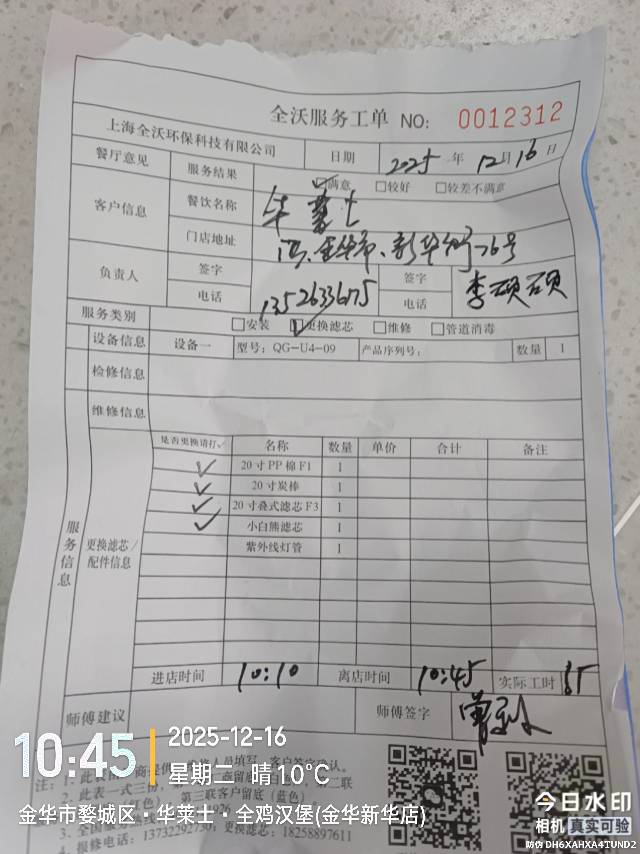 全沃服务工单 NO: 0012312
上海全沃环保科技有限公司 日期 2025 年 12 月 16 日
餐厅意见 服务结果 满意 较好 较差不满意
客户信息 餐饮名称 华莱士
门店地址 金华市、新华街76号
负责人 签字 签字 李硕硕
电话 13526336175 电话
服务类别 安装 更换滤芯 维修 管道消毒
设备信息 设备一 型号: QG-U4-09 产品序列号: 数量 1
检修信息
维修信息
服务信息
更换滤芯/配件信息
是否更换请打✓ 名称 数量 单价 合计 备注
✓ 20寸PP棉F1 1
✓ 20寸炭棒 1
✓ 20寸叠式滤芯F3 1
✓ 小白熊滤芯 1
紫外线灯管 1
进店时间 10:10 离店时间 10:45 实际工时
师傅建议 师傅签字
10:45 2025-12-16
星期二 晴 10°C
金华市婺城区·华莱士·全鸡汉堡(金华新华店)
报修电话: 13732292730; 更换滤芯: 18258897611
今日水印
相机 真实可验
防伪 DH6XAHXA4TUND2